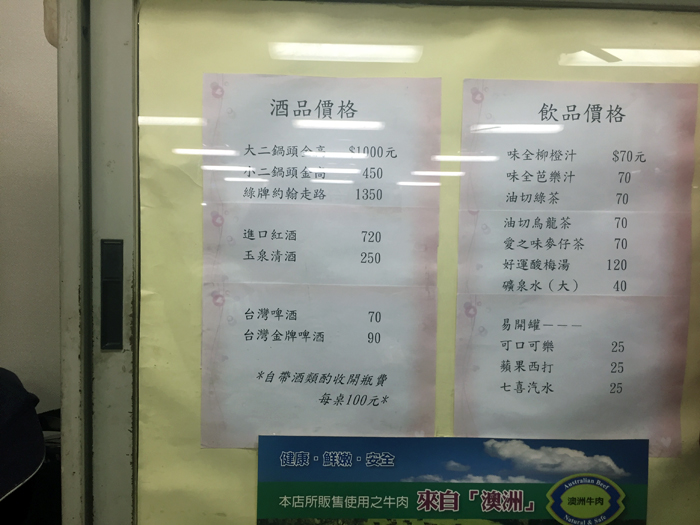 酒品價格
大二鍋頭金高 $1000元
小二鍋頭金高 450
綠牌約翰走路 1350
進口紅酒 720
玉泉清酒 250
台灣啤酒 70
台灣金牌啤酒 90
*自帶酒類酌收開瓶費
每桌100元*
飲品價格
味全柳橙汁 $70元
味全芭樂汁 70
油切綠茶 70
油切烏龍茶 70
愛之味麥仔茶 70
好運酸梅湯 120
礦泉水（大） 40
易開罐———
可口可樂 25
蘋果西打 25
七喜汽水 25
健康·鮮嫩·安全
本店所販售使用之牛肉 來自「澳洲」
Australian Beef
澳洲牛肉
Natural & Safe